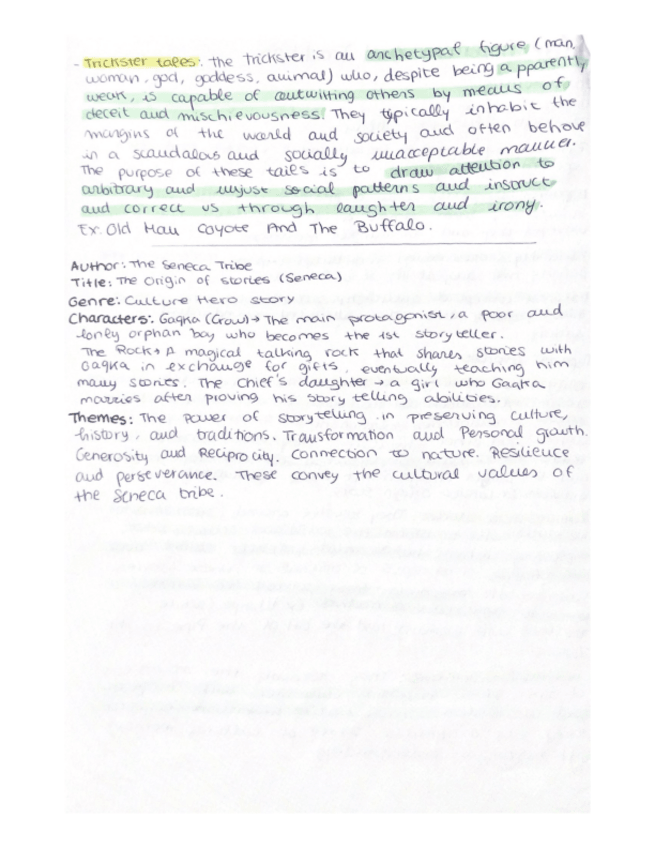 - Trickster tales: the trickster is an archetypal figure (man,
woman, god, goddess, animal) who, despite being apparently
weak, is capable of outwitting others by means of
deceit and mischievousness. They typically inhabit the
margins of the world and society and often behave
in a scandalous and socially unacceptable manner.
The purpose of these tails is to draw attention to
arbitrary and unjust social patterns and instruct
and correct us through laughter and irony.
Ex: Old Man Coyote And The Buffalo.
Author: The Seneca Tribe
Title: The Origin of stories (Seneca)
Genre: Culture Hero story
Characters: Gaqka (Crow) → The main protagonist, a poor and
lonely orphan boy who becomes the 1st storyteller.
The Rock → A magical talking rock that shares stories with
Gaqka in exchange for gifts, eventually teaching him
many stories. The Chief's daughter → a girl who Gaqka
marries after proving his story telling abilities.
Themes: The Power of storytelling in preserving culture,
history, and traditions. Transformation and Personal growth.
Generosity and Reciprocity. Connection to nature. Resilience
and perseverance. These convey the cultural values of
the Seneca tribe.